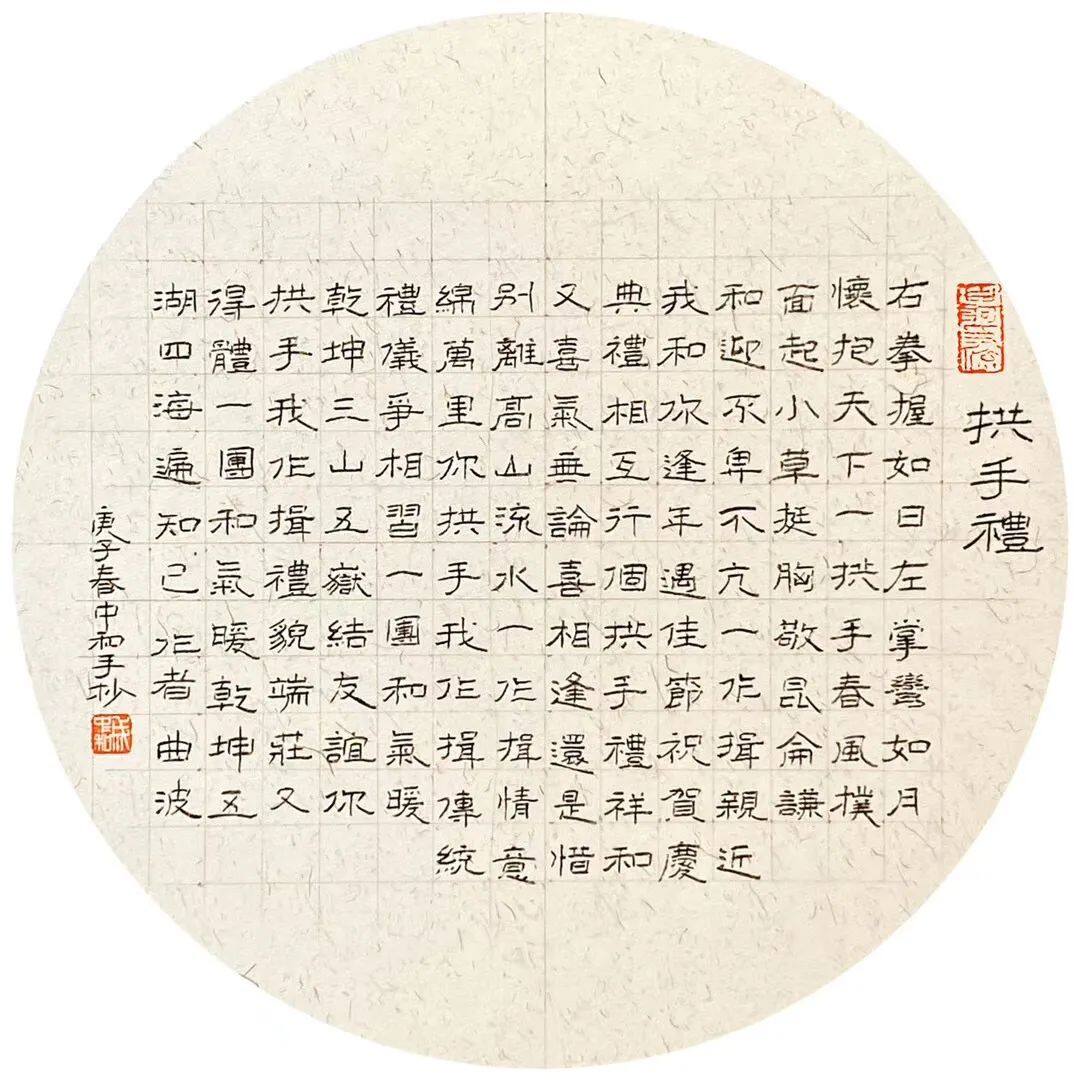 拱手禮
右拳握如日左掌彎如月
懷抱天下一拱手春風撲
面起小草挺胸敬昆侖謙
和迎不卑不亢一作揖親近
我和你逢年遇佳節祝賀慶
典禮相互行個拱手禮祥和
又喜氣無論喜相逢還是惜
别離高山流水一作揖情意
綿萬里你拱手我作揖傳統
禮儀爭相習一團和氣暖
乾坤三山五嶽結友誼你
拱手我作揖禮貌端莊又
得體一團和氣暖乾坤五
湖四海遍知己作者曲波
庚子春中和手抄